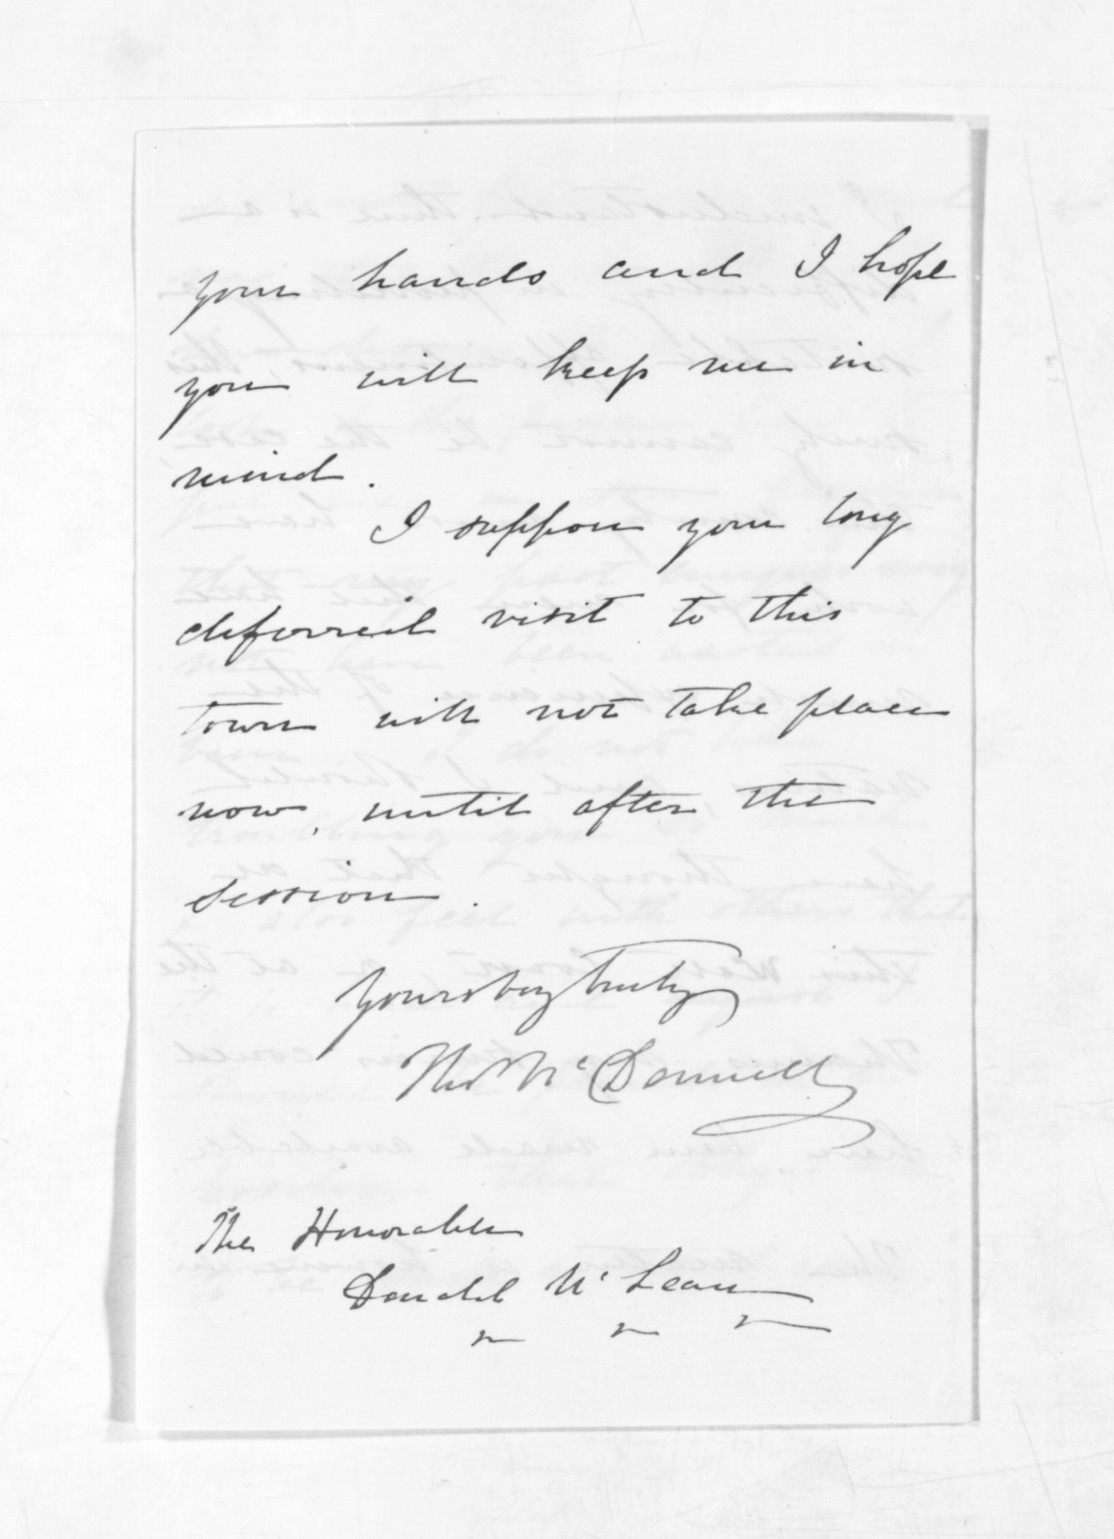 your hands and I hope
you will keep me in
mind.
I suppose your long
deferred visit to this
town will not take place
now, until after the
session.
Yours very truly
Thos McDonnell
The Honorable
Donald McLean